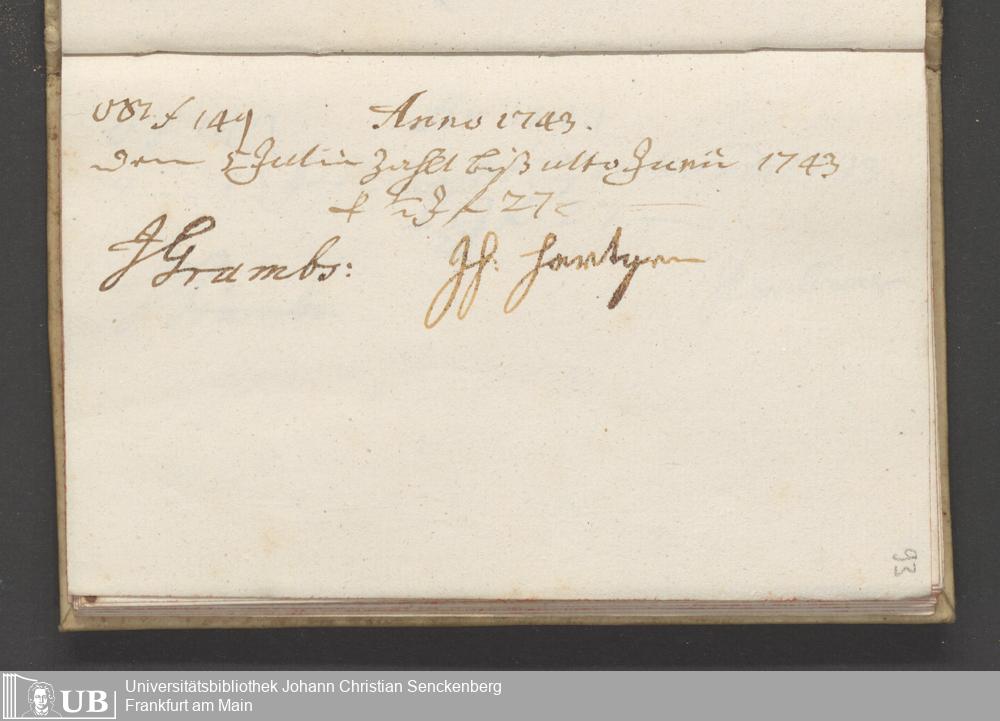 149 Anno 1743.
den Julii zahlt biß ulto Junii 1743
27
JGrambs:
Jh: Hartzen
93
UB
Universitätsbibliothek Johann Christian Senckenberg
Frankfurt am Main